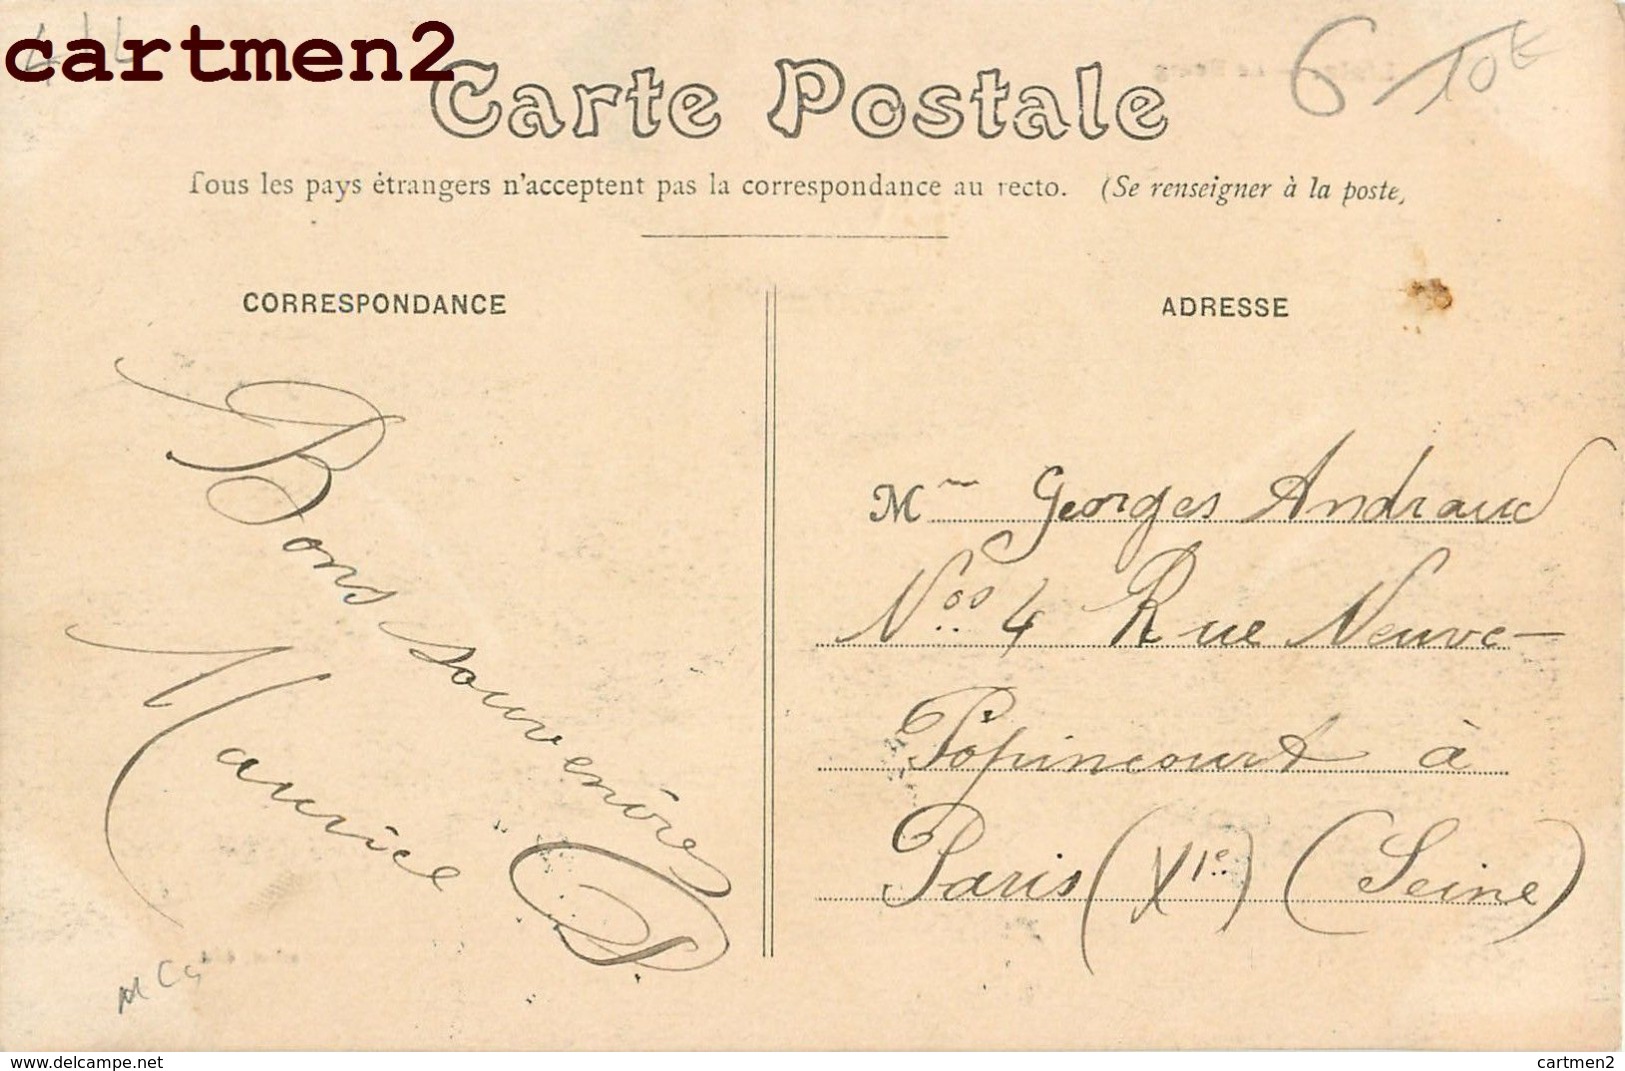 cartmen2
6 10€
Carte Postale
Tous les pays étrangers n'acceptent pas la correspondance au recto. (Se renseigner à la poste)
CORRESPONDANCE
Bons souvenirs
Maurice D.
ADRESSE
Mme Georges Andraud
Nos 4 Rue Neuve-
Popincourt à
Paris (XIe) (Seine)
www.delcampe.net
cartmen2